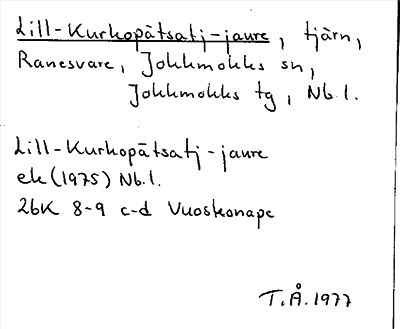 Lill-Kurkopåtsatj-jaure, tjärn,
Ranesvare, Jokkmokks sn,
Jokkmokks tg, Nb.l.
Lill-Kurkopåtsatj-jaure
ek (1975) Nb.l.
26K 8-9 c-d Vuoskonape
T.Å. 1977